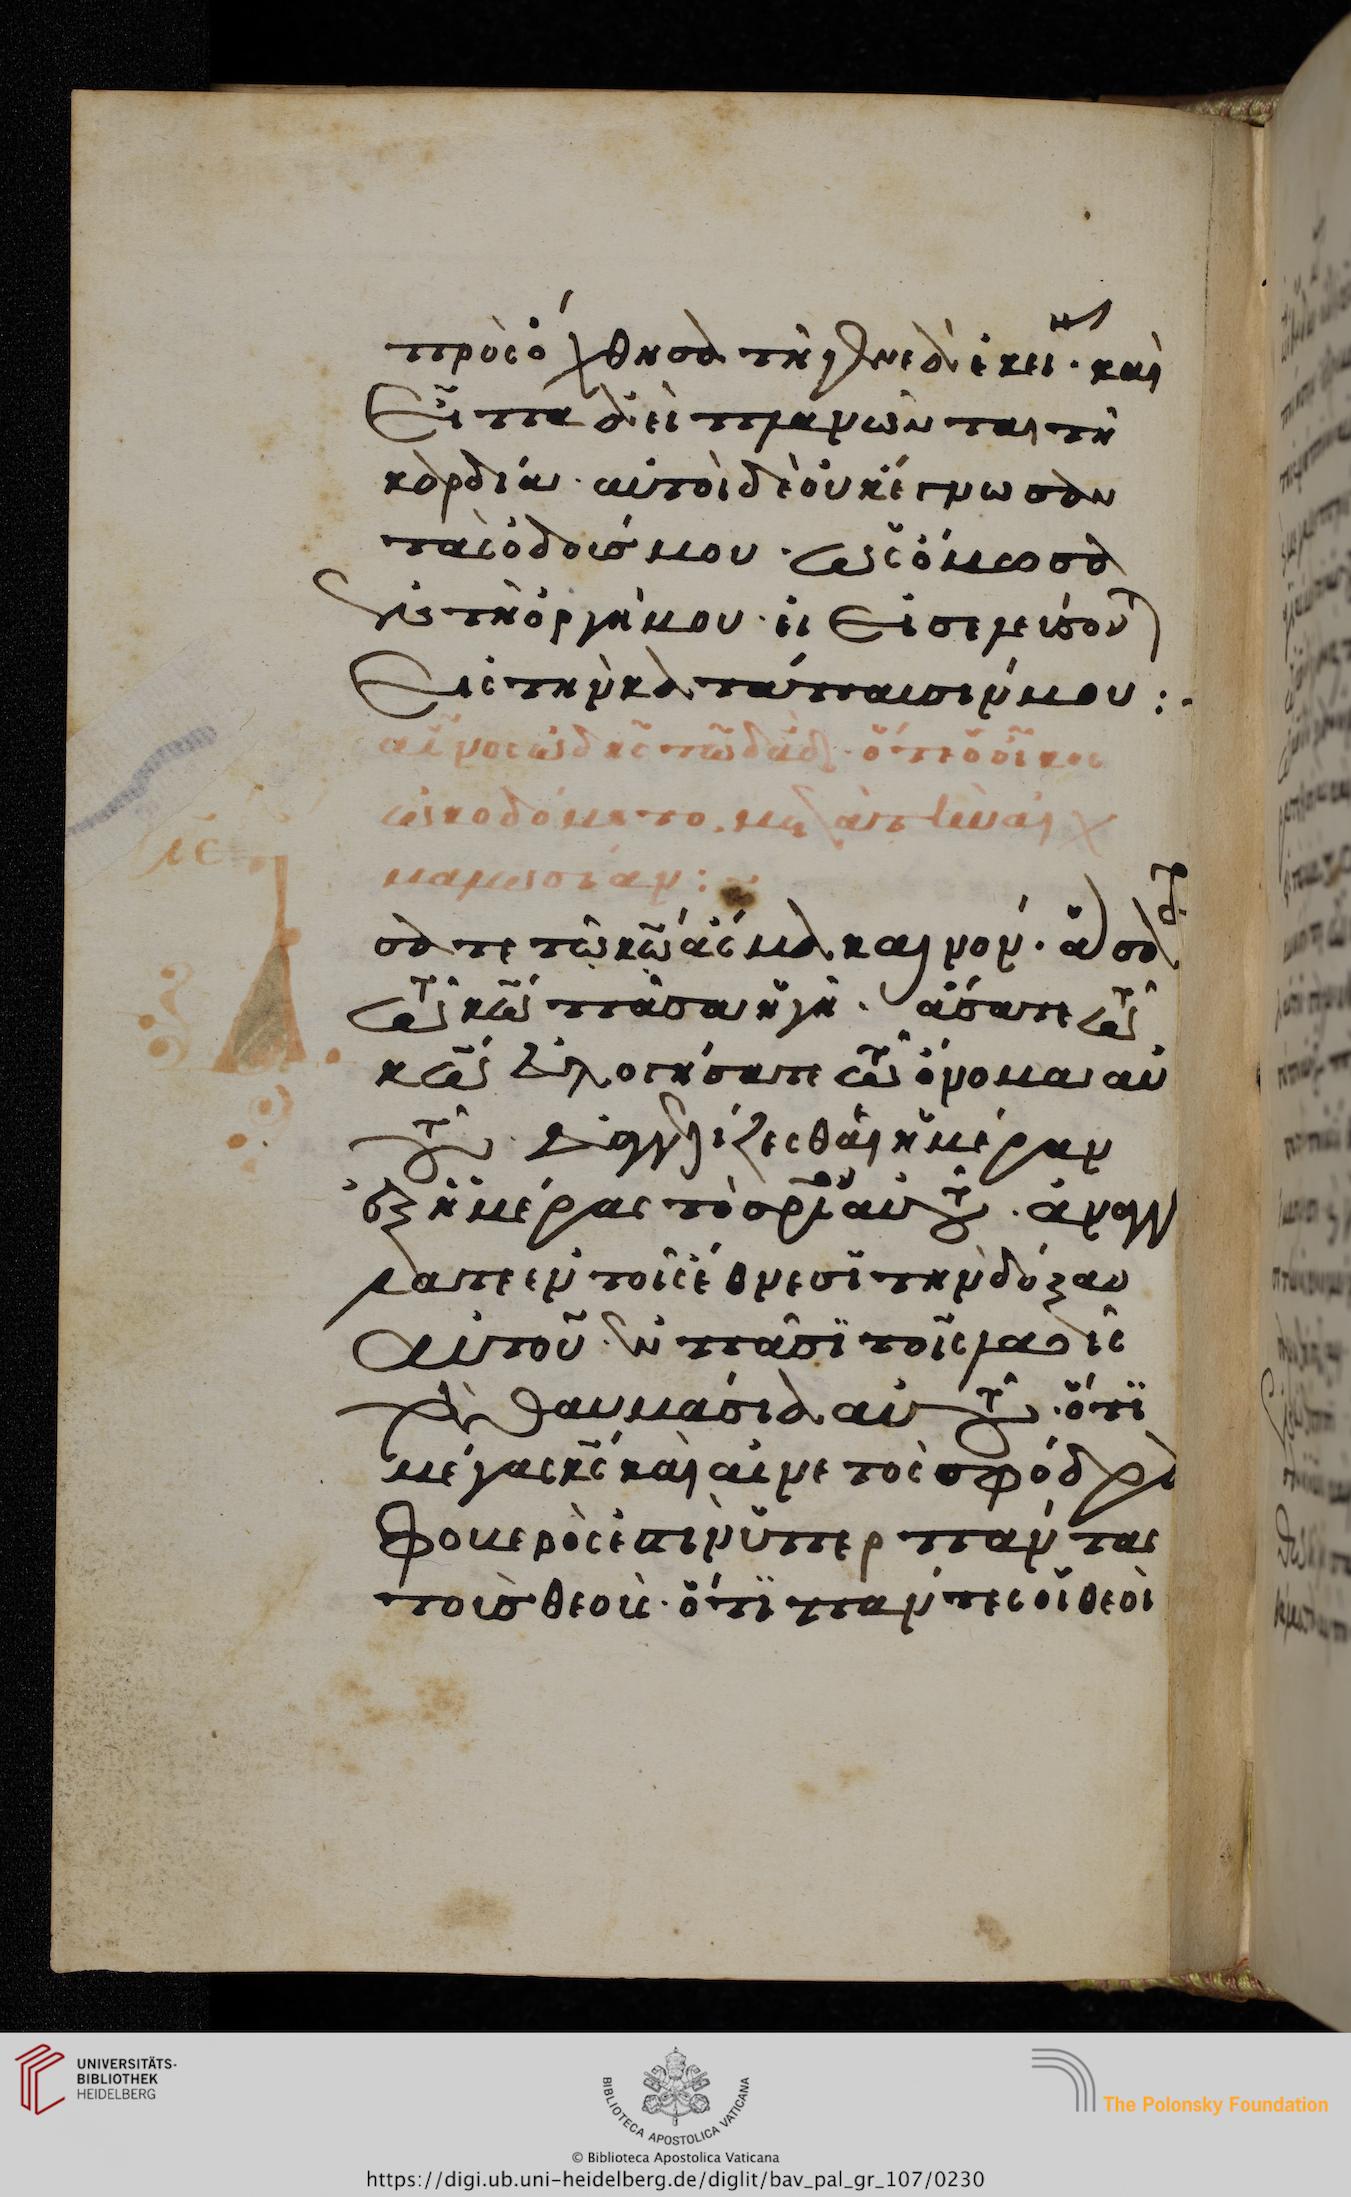 προσώχθησα τῆ γενεᾶ ἐκείνη· καὶ
εἶπα ἀεὶ πλανῶνται τῆ
καρδία· αὐτοὶ δὲ οὐκ ἔγνωσαν
τὰς ὁδούς μου· ὡς ὄμοσα
ἐν τῆ ὀργῆ μου· εἰ εἰσελεύσον
εἰς τὴν κατάπαυσίν μου:
αἶνος ὠδῆς τῶ δαδ· ὅτε ὁ οἶκος
ὠκοδόμητο μετὰ τὴν αἰχ
μαλωσίαν:
ιε
Α
σατε τῶ κω ἄσμα καινόν· ἄσατε
τῶ κω πᾶσα ἡ γῆ· ἄσατε τῶ
κω εὐλογήσατε τὸ ὄνομα αὐ
τοῦ· εὐαγγελίζεσθαι ἡμέραν
ἐξ ἡμέρας τὸ σριον αὐτοῦ· ἀναγγεί
λατε ἐν τοῖς ἔθνεσι τὴν δόξαν
αὐτοῦ· ἐν πᾶσι τοῖς λαοῖς
τὰ θαυμάσια αὐτοῦ· ὅτι
μέγας κς καὶ αἰνετὸς σφόδρα
φοβερός ἐστιν ὑπὲρ πάντας
τοὺς θεούς· ὅτι πάντες οἱ θεοὶ
UNIVERSITÄTS-
BIBLIOTHEK
HEIDELBERG
BIBLIOTECA APOSTOLICA VATICANA
The Polonsky Foundation
© Biblioteca Apostolica Vaticana
https://digi.ub.uni-heidelberg.de/diglit/bav_pal_gr_107/0230